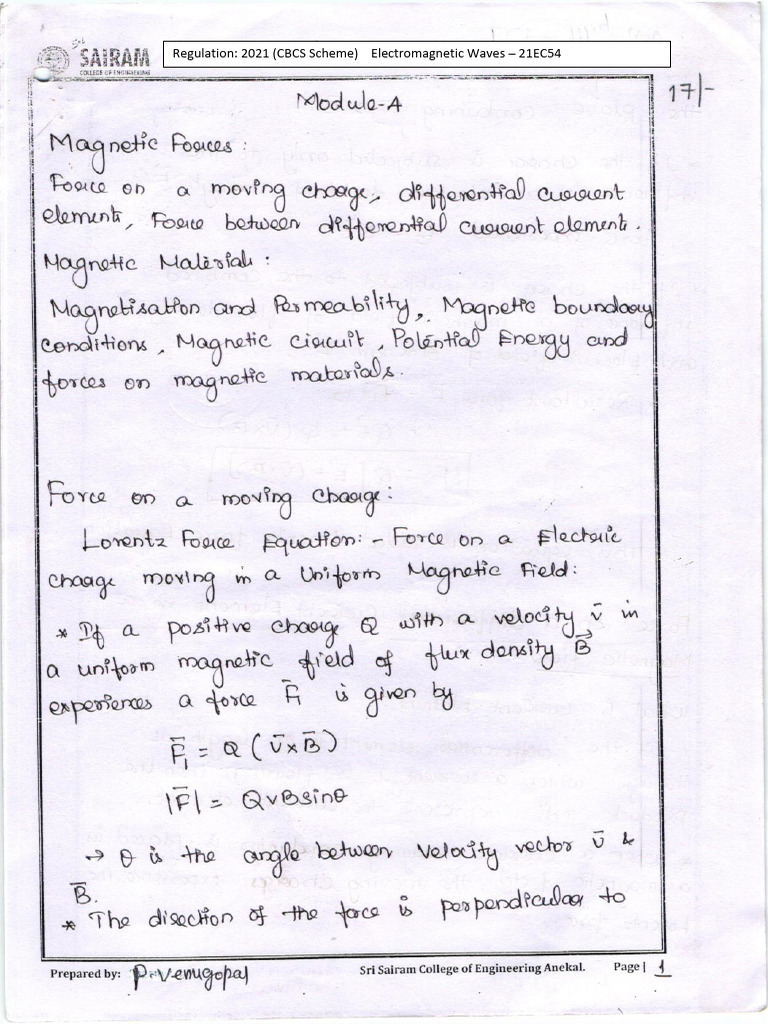 Sri
SAIRAM
COLLEGE OF ENGINEERING
Regulation: 2021 (CBCS Scheme) Electromagnetic Waves – 21EC54
17/-
Module-4
Magnetic Forces :
Force on a moving charge, differential current
elements, Force between differential current elements.
Magnetic Materials :
Magnetisation and Permeability, Magnetic boundary
conditions, Magnetic circuit, Potential Energy and
forces on magnetic materials.
Force on a moving Charge:
Lorentz Force Equation:- Force on a Electric
charge moving in a Uniform Magnetic Field:
* If a positive charge Q with a velocity v̄ in
a uniform magnetic field of flux density B⃗
experiences a force F̄₁ is given by
F̄₁ = Q (v̄ × B̄)
|F̄| = QvBsinθ
→ θ is the angle between velocity vector v̄ &
B̄.
* The direction of the force is perpendicular to
Prepared by: P. Venugopal Sri Sairam College of Engineering Anekal. Page | 1